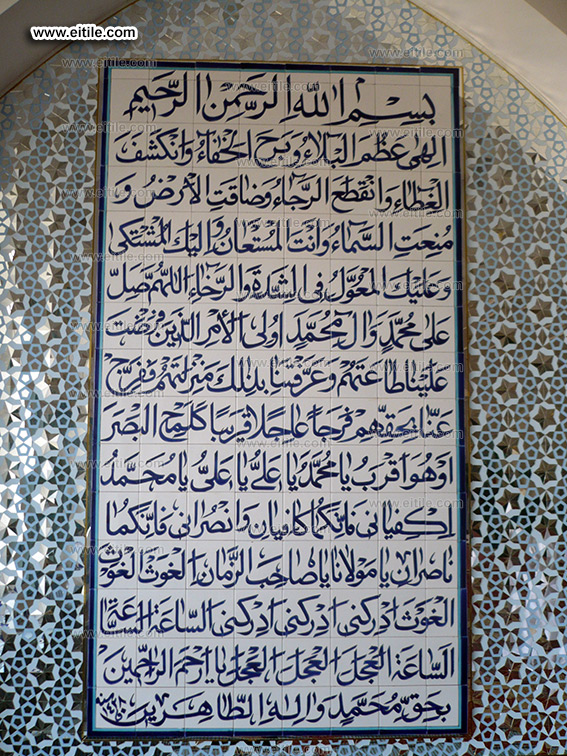 www.eitile.com
بِسْمِ اللهِ الرَّحْمنِ الرَّحيمِ
اِلهى عَظُمَ الْبَلاءُ وَبَرِحَ الْخَفاءُ وَانْكَشَفَ
الْغِطاءُ وَانْقَطَعَ الرَّجاءُ وَضاقَتِ الْاَرْضُ وَ
مُنِعَتِ السَّماءُ وَاَنْتَ الْمُسْتَعانُ وَاِلَيْكَ الْمُشْتَكى
وَعَلَيْكَ الْمُعَوَّلُ فِى الشِّدَّةِ وَالرَّخاءِ اَللّهُمَّ صَلِّ
عَلى مُحَمَّدٍ وَالِ مُحَمَّدٍ اُولِى الْاَمْرِ الَّذينَ فَرَضْتَ
عَلَيْنا طاعَتَهُمْ وَعَرَّفْتَنا بِذلِكَ مَنْزِلَتَهُمْ فَفَرِّجْ
عَنّا بِحَقِّهِمْ فَرَجاً عاجِلاً قَريباً كَلَمْحِ الْبَصَرِ
اَوْ هُوَ اَقْرَبُ يا مُحَمَّدُ يا عَلِىُّ يا عَلِىُّ يا مُحَمَّدُ
اِكْفِيانى فَاِنَّكُما كافِيانِ وَانْصُرانى فَاِنَّكُما
ناصِرانِ يا مَوْلانا يا صاحِبَ الزَّمانِ الْغَوْثَ الْغَوْثَ
الْغَوْثَ اَدْرِكْنى اَدْرِكْنى اَدْرِكْنى السّاعَةَ السّاعَةَ
السّاعَةَ الْعَجَلَ الْعَجَلَ الْعَجَلَ يا اَرْحَمَ الرّاحِمينَ
بِحَقِّ مُحَمَّدٍ وَالِهِ الطّاهِرينَ